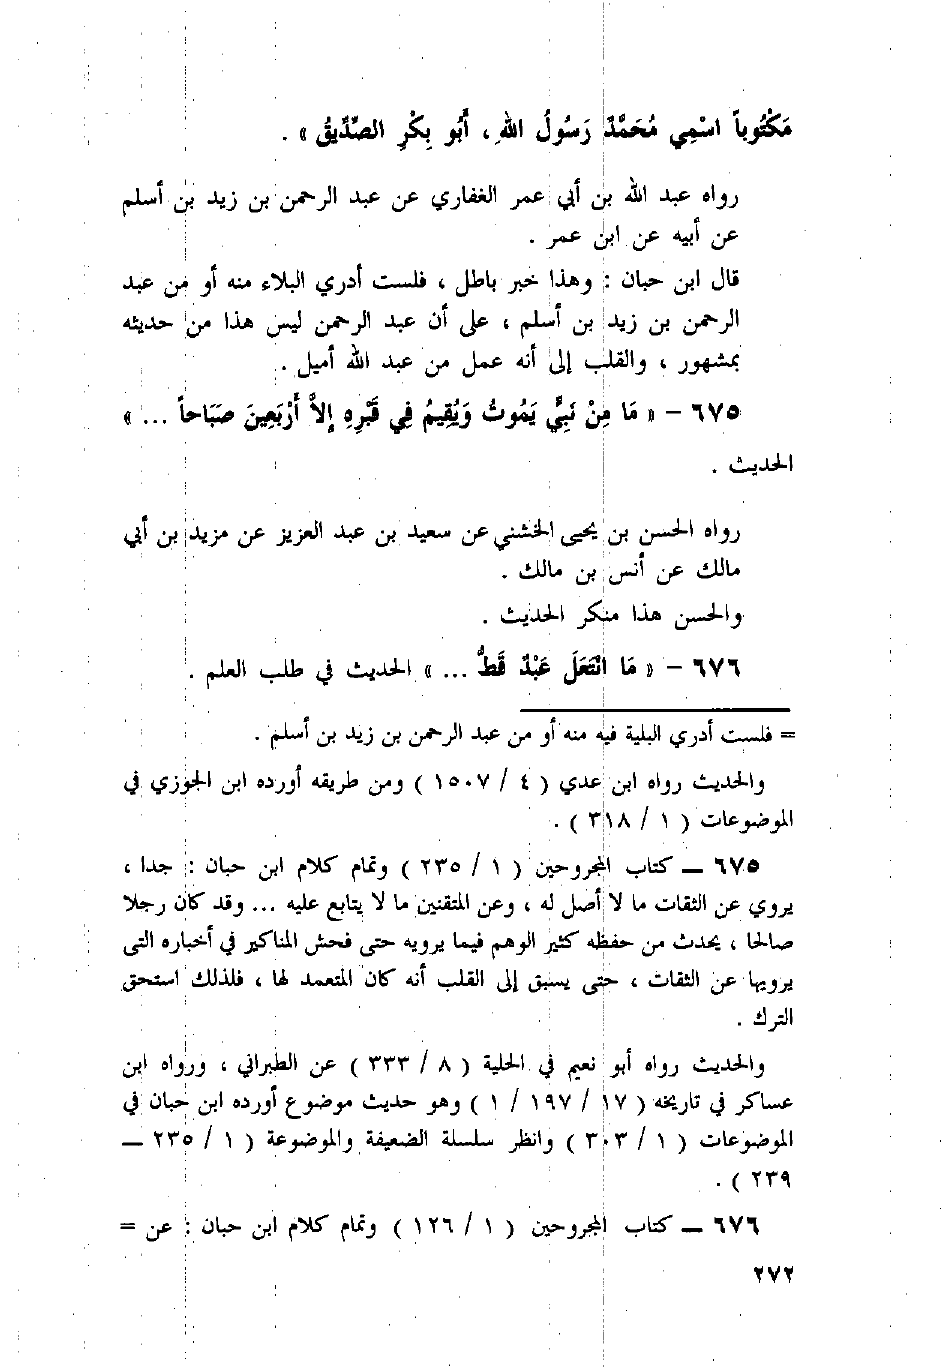 مَكْتُوباً اسْمِي مُحَمَّدٌ رَسُولُ اللهِ ، أَبُو بِكْرِ الصِّدِّيقُ » .
رواه عبد الله بن أبي عمر الغفاري عن عبد الرحمن بن زيد بن أسلم
عن أبيه عن ابن عمر .
قال ابن حبان : وهذا خبر باطل ، فلست أدري البلاء منه أو من عبد
الرحمن بن زيد بن أسلم ، على أن عبد الرحمن ليس هذا من حديثه
بمشهور ، والقلب إلى أنه عمل من عبد الله أميل .
٦٧٥ – « مَا مِنْ نَبِيٍّ يَمُوتُ وَيُقِيمُ فِي قَبْرِهِ إِلاَّ أَرْبَعِينَ صَبَاحاً ... »
الحديث .
رواه الحسن بن يحيى الخشني عن سعيد بن عبد العزيز عن مزيد بن أبي
مالك عن أنس بن مالك .
والحسن هذا منكر الحديث .
٦٧٦ – « مَا انْتَعَلَ عَبْدٌ قَطُّ ... » الحديث في طلب العلم .
= فلست أدري البلية فيه منه أو من عبد الرحمن بن زيد بن أسلم .
والحديث رواه ابن عدي ( ٤ / ١٥٠٧ ) ومن طريقه أورده ابن الجوزي في
الموضوعات ( ١ / ٣١٨ ) .
٦٧٥ ــ كتاب المجروحين ( ١ / ٢٣٥ ) وتمام كلام ابن حبان : جدا ،
يروي عن الثقات ما لا أصل له ، وعن المتقنين ما لا يتابع عليه ... وقد كان رجلا
صالحا ، يحدث من حفظه كثير الوهم فيما يرويه حتى فحش المناكير في أخباره التى
يرويها عن الثقات ، حتى يسبق إلى القلب أنه كان المتعمد لها ، فلذلك استحق
الترك .
والحديث رواه أبو نعيم في الحلية ( ٨ / ٣٣٣ ) عن الطبراني ، ورواه ابن
عساكر في تاريخه ( ١٧ / ١٩٧ / ١ ) وهو حديث موضوع أورده ابن حبان في
الموضوعات ( ١ / ٣٠٣ ) وانظر سلسلة الضعيفة والموضوعة ( ١ / ٢٣٥ ــ
٢٣٩ ) .
٦٧٦ ــ كتاب المجروحين ( ١ / ١٢٦ ) وتمام كلام ابن حبان : عن =
٢٧٢